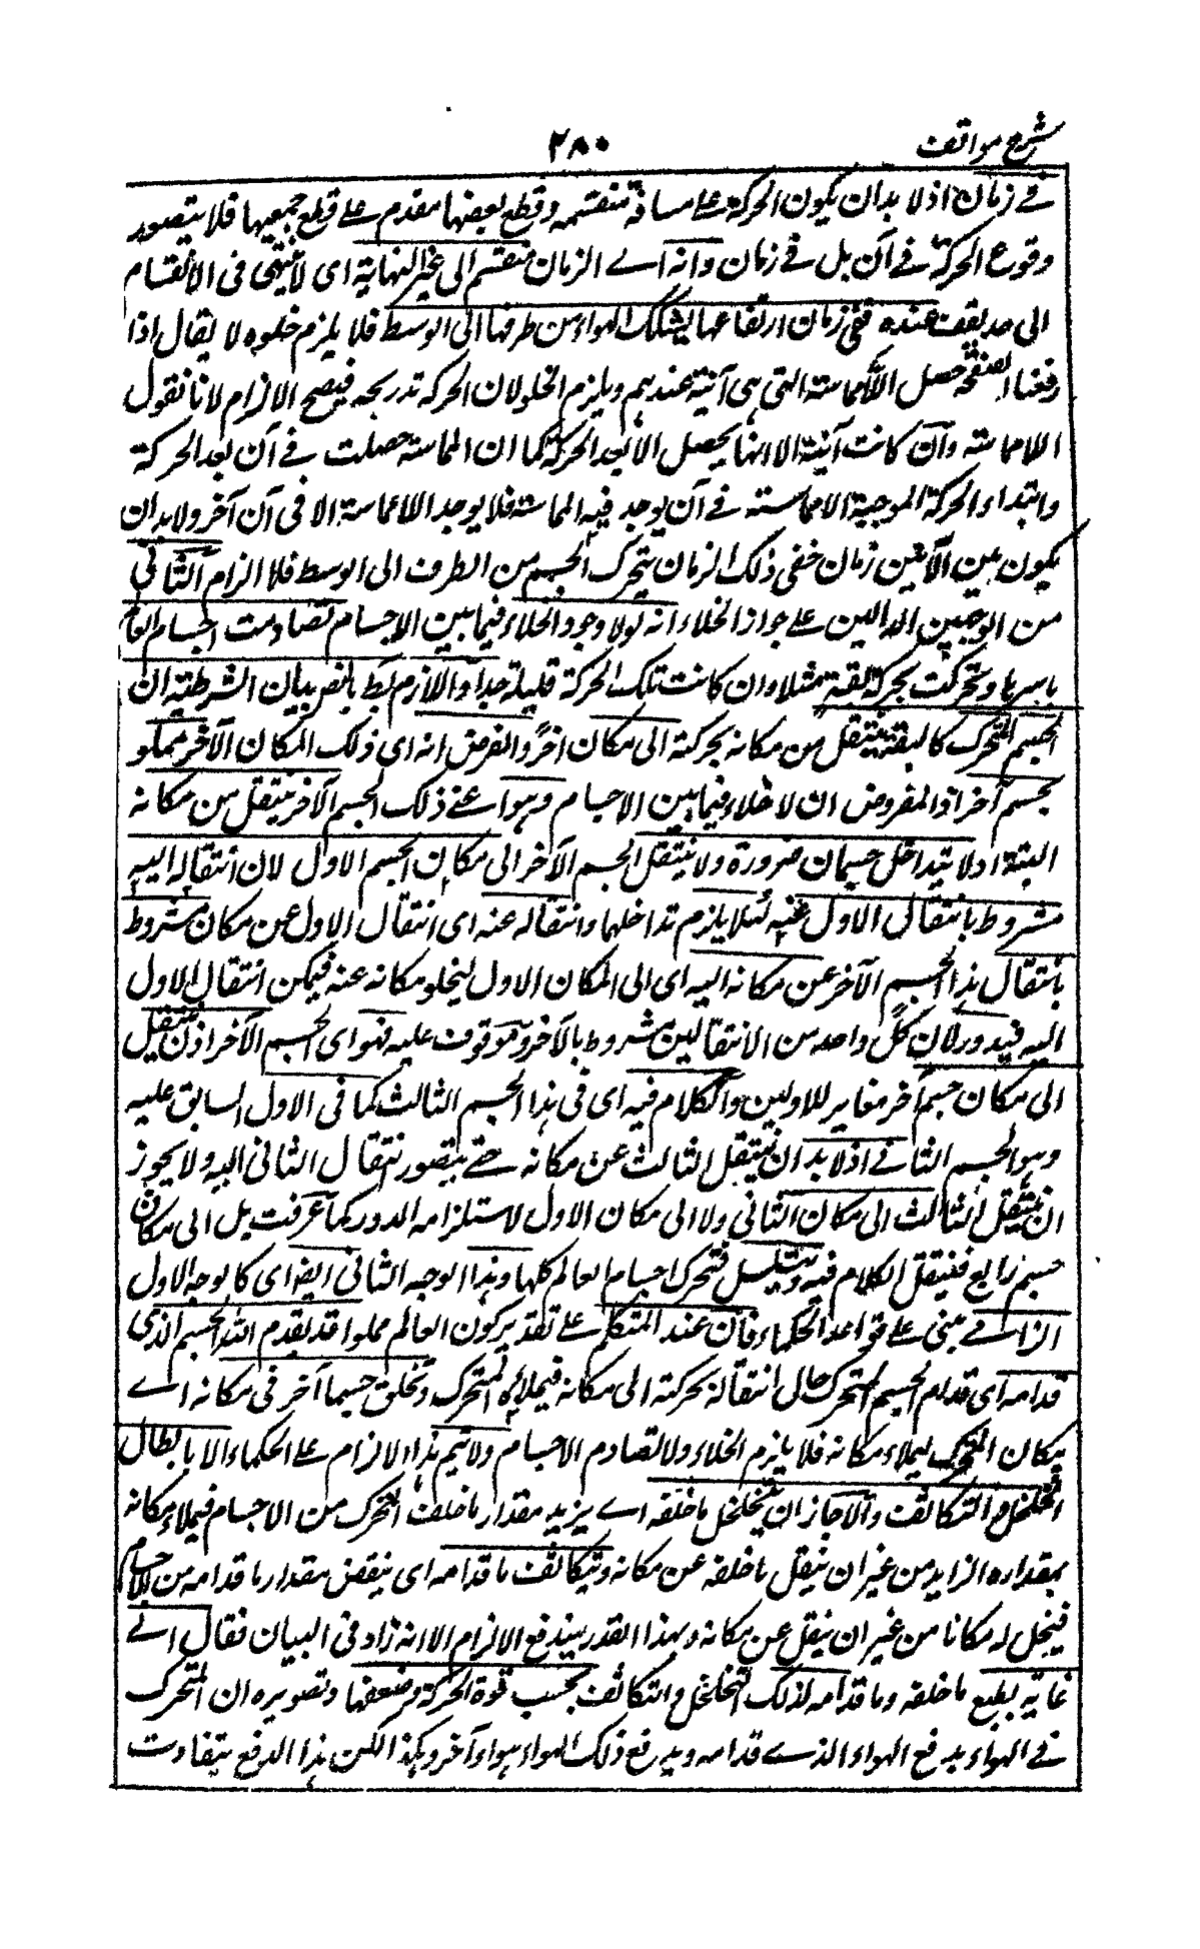 شرح مواقف
٢٨٠
في زمان اذ لا بد ان يكون الحركة على مسافة منقسمة وقطع بعضها مقدم على قطع جميعها فلا يتصور
وقوع الحركة في آن بل في زمان وانه اى الزمان منقسم الى غير النهاية اى لا ينتهى فى الانقسام
الى حد يقف عنده ففى زمان ارتفاعها يسلك الهواء من طرفها الى الوسط فلا يلزم خلوه لا يقال اذا
رفعنا الصفحة حصل اللامماسة التى هى آنية عندهم ويلزم الخلو لان الحركة تدريجية فيصح الالزام لانا نقول
اللامماسة وان كانت آنية الا انها يحصل الا بعد الحركة كما ان المماسة حصلت في آن بعد الحركة
وابتداء الحركة الموجبة اللامماسة في آن يوجد فيه المماسة فلا يوجد اللامماسة الا فى آن آخر ولا بد ان
يكون بين الآنين زمان ففى ذلك الزمان يتحرك الجسم من الطرف الى الوسط فلا الزام الثانى
من الوجهين الدالين على جواز الخلاء انه لولا وجود الخلاء فيما بين الاجسام تصادمت اجسام العالم
باسرها وتحركت بحركة بقة مثلا وان كانت تلك الحركة قليلة جدا واللازم بط بالضر بيان الشرطية ان
الجسم المتحرك كالبقة ينتقل من مكانه بحركته الى مكان آخر والفرض انه اى ذلك المكان الآخر مملو
بجسم آخر اذ المفروض ان لا خلاء فيما بين الاجسام وهو اعنى ذلك الجسم الآخر ينتقل من مكانه
البتة اذ لا يتداخل جسمان ضرورة ولا ينتقل الجسم الآخر الى مكان الجسم الاول لان انتقاله اليه
مشروط بانتقال الاول عنه لئلا يلزم تداخلهما وانتقاله عنه اى انتقال الاول عن مكانه مشروط
بانتقال هذا الجسم الآخر عن مكانه اليه اى الى المكان الاول ليخلو مكانه عنه فيمكن انتقال الاول
اليه فيدور لان كل واحد من الانتقالين مشروط بالآخر وموقوف عليه فهو اى الجسم الآخر اذن ينتقل
الى مكان جسم آخر مغاير للاولين والكلام فيه اى فى هذا الجسم الثالث كما فى الاول السابق عليه
وهو الجسم الثاني اذ لا بد ان ينتقل الثالث عن مكانه حتى يتصور انتقال الثانى اليه ولا يجوز
ان ينتقل الثالث الى مكان الثانى ولا الى مكان الاول لاستلزامه الدور كما عرفت بل الى مكان
جسم رابع فننقل الكلام فيه ويتسلسل فتحرك اجسام العالم كلها وهذا الوجه الثانى ايضا اى كالوجه الاول
الزامي مبنى على قواعد الحكماء فان عند المتكلم على تقدير كون العالم مملوا قد يعدم الله الجسم الذى
قدامه اى قدام الجسم المتحرك حال انتقاله بحركته الى مكانه فيملاؤه المتحرك ويخلق جسما آخر فى مكانه اى
مكان المتحرك ليملاء مكانه فلا يلزم الخلاء ولا تصادم الاجسام ولا يتم هذا الالزام على الحكماء الا بابطال
التخلخل والتكاثف والا جاز ان يتخلخل ما خلفه اى يزيد مقدار ما خلف المتحرك من الاجسام فيملاء مكانه
بمقداره الزايد من غير ان ينتقل ما خلفه عن مكانه ويتكاثف ما قدامه اى ينقص مقدار ما قدامه من الاجسام
فيخلى له مكانا من غير ان ينتقل عن مكانه وبهذا القدر يندفع الالزام الا انه زاد فى البيان فقال الى
غاية يطيع ما خلفه وما قدامه لذلك التخلخل والتكاثف بحسب قوة الحركة وضعفها وتصويره ان المتحرك
في الهواء يدفع الهواء الذى قدامه ويدفع ذلك الهواء هواء آخر وهكذا لكن هذا الدفع يتفاوت